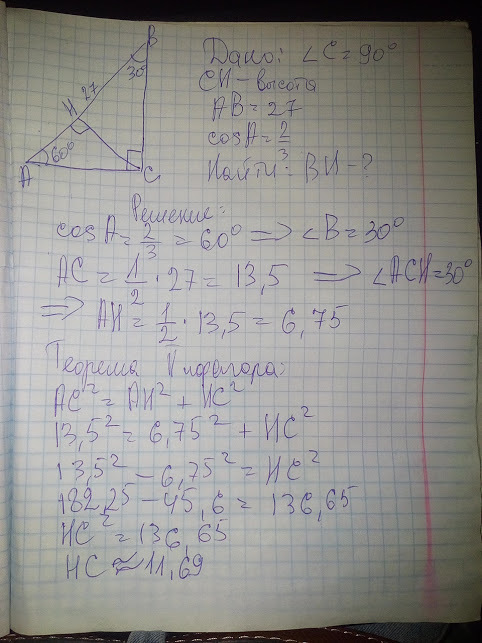 B
30°
27
H
60°
A
C
Дано: ∠C = 90°
CH - высота
AB = 27
cosA = 2/3
Найти: BH - ?
Решение:
cosA = 2/3 = 60° ⟹ ∠B = 30°
AC = 1/2 · 27 = 13,5 ⟹ ∠ACH = 30°
⟹ AH = 1/2 · 13,5 = 6,75
Теорема Пифагора:
AC² = AH² + HC²
13,5² = 6,75² + HC²
13,5² - 6,75² = HC²
182,25 - 45,6 = 136,65
HC² = 136,65
HC ≈ 11,69